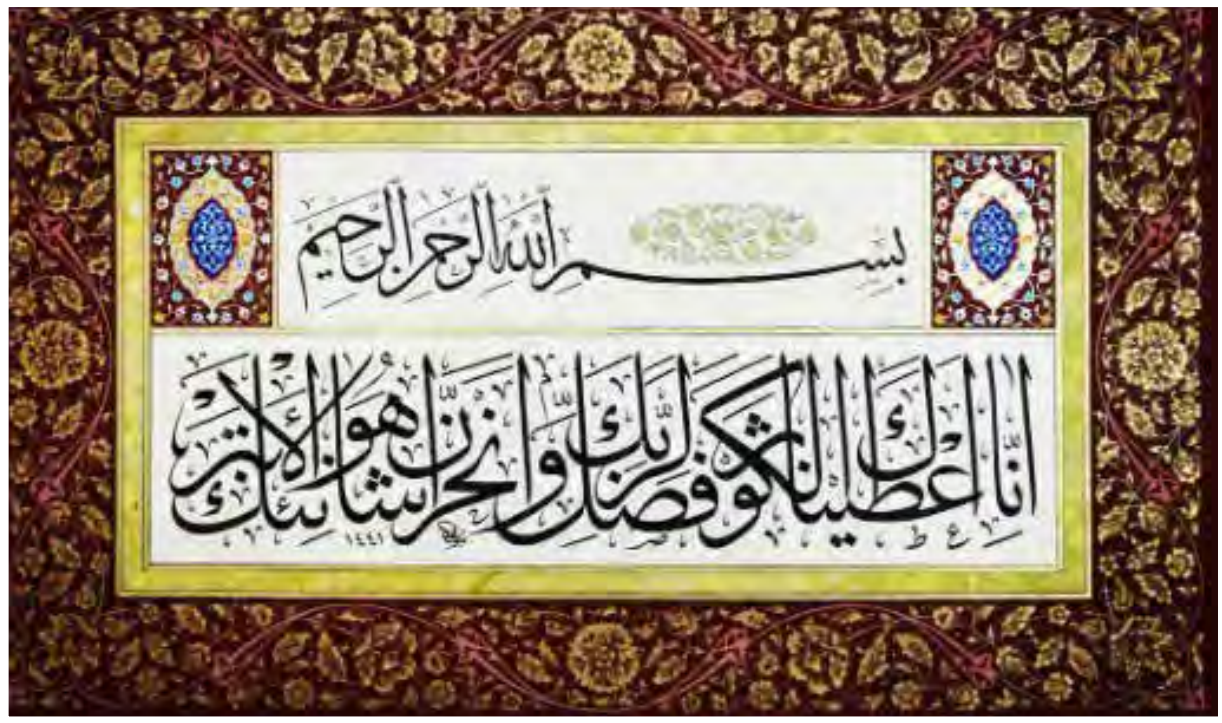 بِسْمِ اللَّهِ الرَّحْمَٰنِ الرَّحِيمِ
اِنَّا اَعْطَيْنَاكَ الْكَوْثَرَ فَصَلِّ لِرَبِّكَ وَانْحَرْ اِنَّ شَانِئَكَ هُوَ الْاَبْتَرُ
١٤٤١